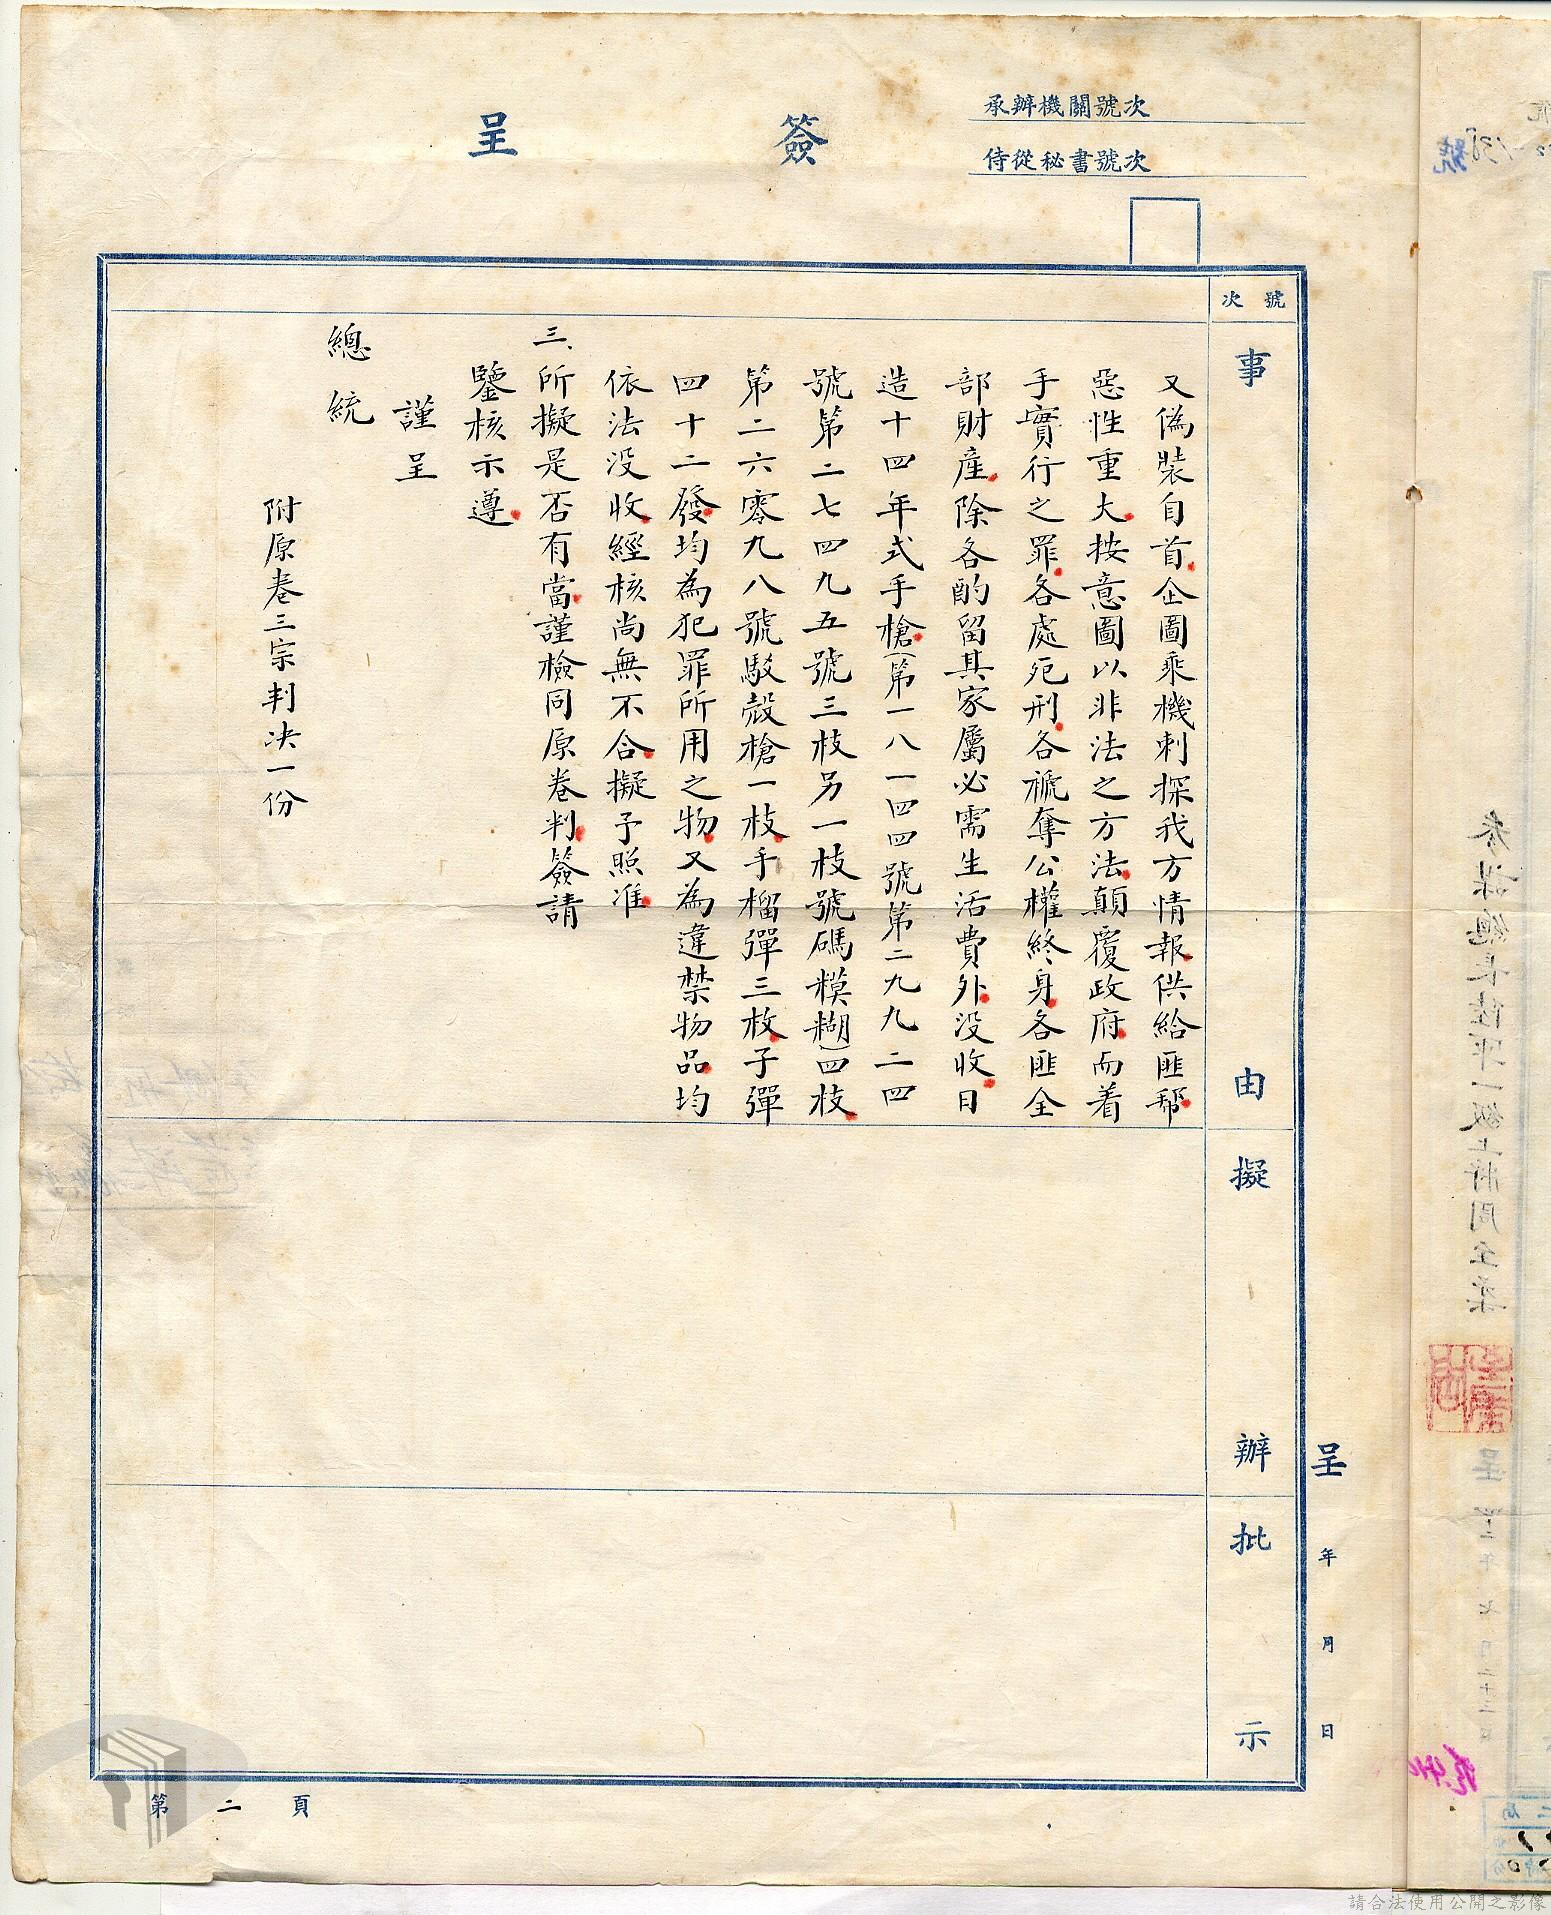 承辦機關號次
侍從秘書號次
簽呈
號次
事由
擬辦
批示
又偽裝自首企圖乘機刺探我方情報供給匪幫
惡性重大按意圖以非法之方法顛覆政府而着
手實行之罪各處死刑各褫奪公權終身各匪全
部財產除各酌留其家屬必需生活費外没收日
造十四年式手槍(第一八一四四號第二九九二四
號第二七四九五號三枝另一枝號碼糢糊)四枝
第二六零九八號駁殼槍一枝手榴彈三枚子彈
四十二發均為犯罪所用之物又為違禁物品均
依法没收經核尚無不合擬予照准
三、所擬是否有當謹檢同原卷判簽請
鑒核示遵
謹呈
總統
附原卷三宗判決一份
呈 年 月 日
第二頁
參謀總長陸軍一級上將周至柔
呈
號
請合法使用公開之影像